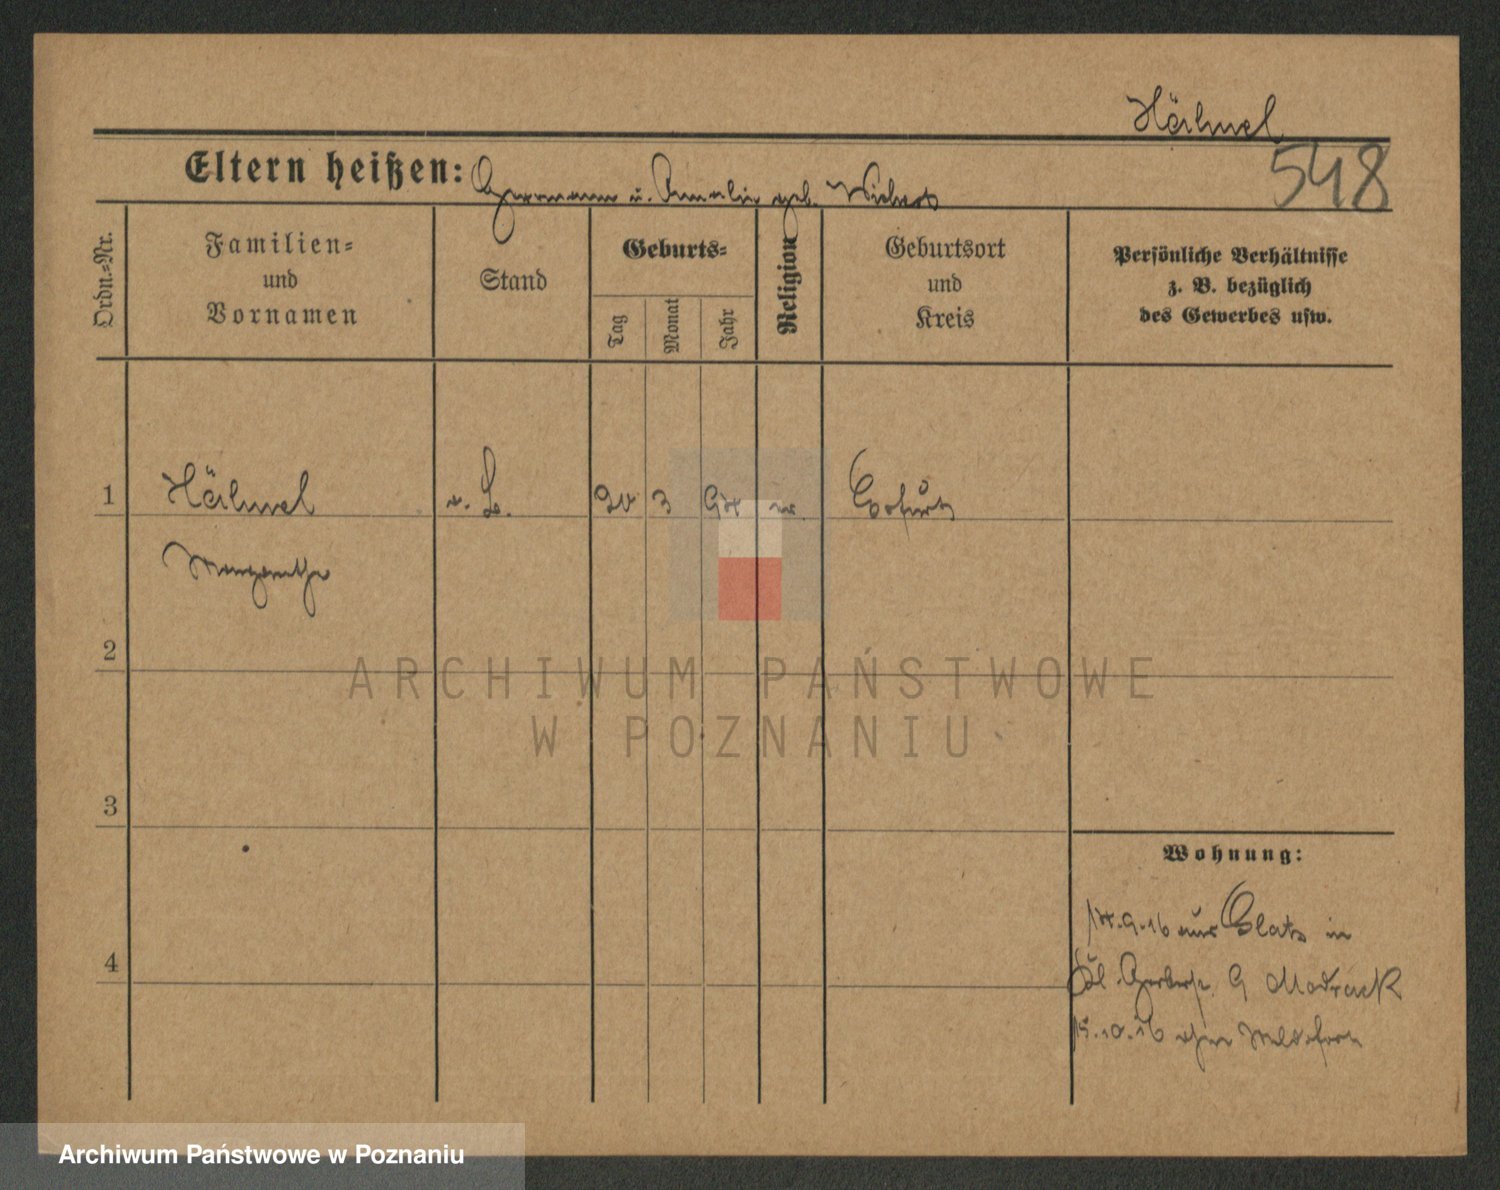 Hähnel
548
Eltern heißen: Herrmann u. Amalie geb. Wichert
Ordn.=Nr.
Familien=
und
Vornamen
Stand
Geburts=
Tag
Monat
Jahr
Religion
Geburtsort
und
Kreis
Persönliche Verhältnisse
z. B. bezüglich
des Gewerbes usw.
1 Hähnel 20 3 Erfurt
Margarethe
2
3
4
Wohnung:
.9.16 aus Glatz in
Kl. Gerberstr. 9
15.10.16
ARCHIWUM PAŃSTWOWE
W POZNANIU
Archiwum Państwowe w Poznaniu